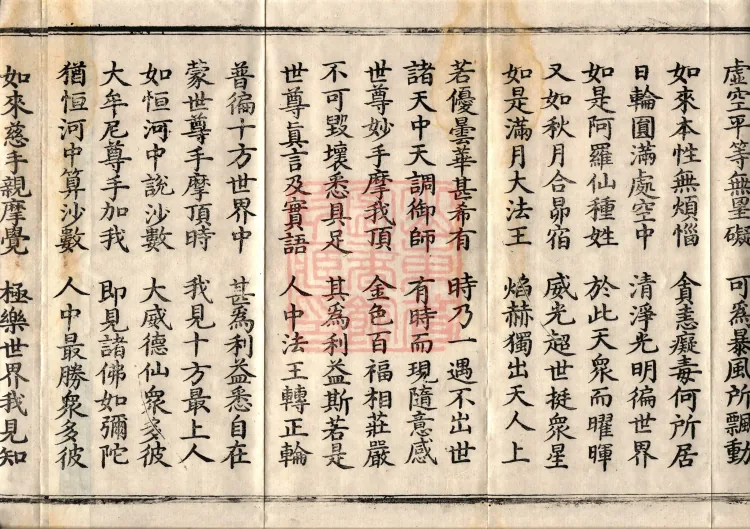 虛空平等無罣礙　可為暴風所飄動
如來本性無煩惱　貪恚癡毒何所居
日輪圓滿處空中　清淨光明徧世界
如是阿羅仙種姓　於此天衆而曜暉
又如秋月合昴宿　威光超世挺衆星
如是滿月大法王　焰赫獨出天人上
若優曇華甚希有　時乃一遇不出世
諸天中天調御師　有時而現隨意感
世尊妙手摩我頂　金色百福相莊嚴
不可毀壞悉具足　其為利益斯若是
世尊眞言及實語　人中法王轉正輪
普徧十方世界中　甚為利益悉自在
蒙世尊手摩頂時　我見十方最上人
如恒河中說沙數　大威德仙衆多彼
大牟尼尊手加我　即見諸佛如彌陀
猶恒河中算沙數　人中最勝衆多彼
如來慈手親摩覺　極樂世界我見知